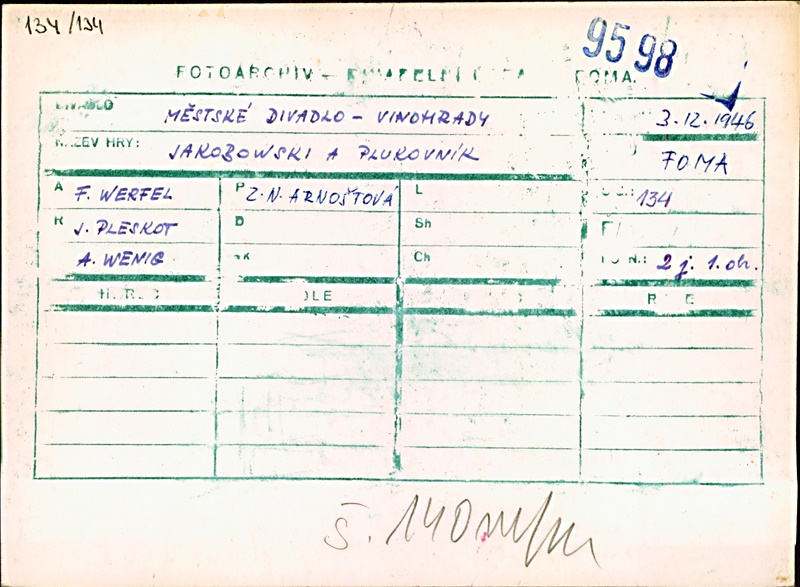 134/134
9598
FOTOARCHIV –
MĚSTSKÉ DIVADLO – VINOHRADY
3.12.1946
JAKOBOWSKI A PLUKOVNÍK
FOMA
A F. WERFEL
P Z.N. ARNOŠTOVÁ
L
134
R J. PLESKOT
D
Sh
A. WENIG
Ch
2 j. 1. ob.
Š. 140 m/m